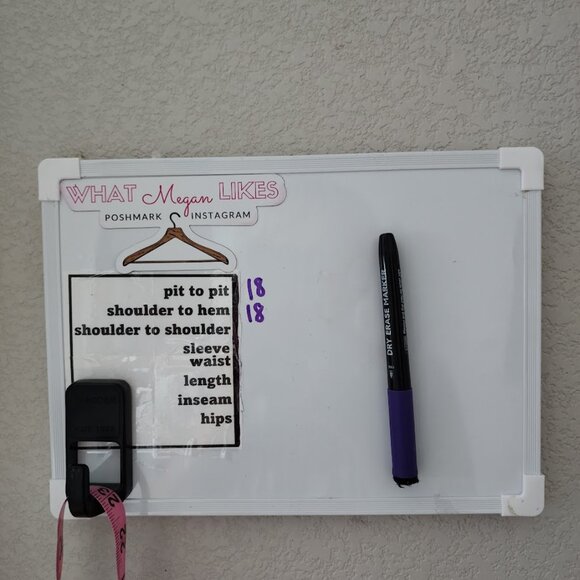 WHAT Megan LIKES
POSHMARK INSTAGRAM
pit to pit 18
shoulder to hem 18
shoulder to shoulder
sleeve
waist
length
inseam
hips
DRY ERASE MARKER